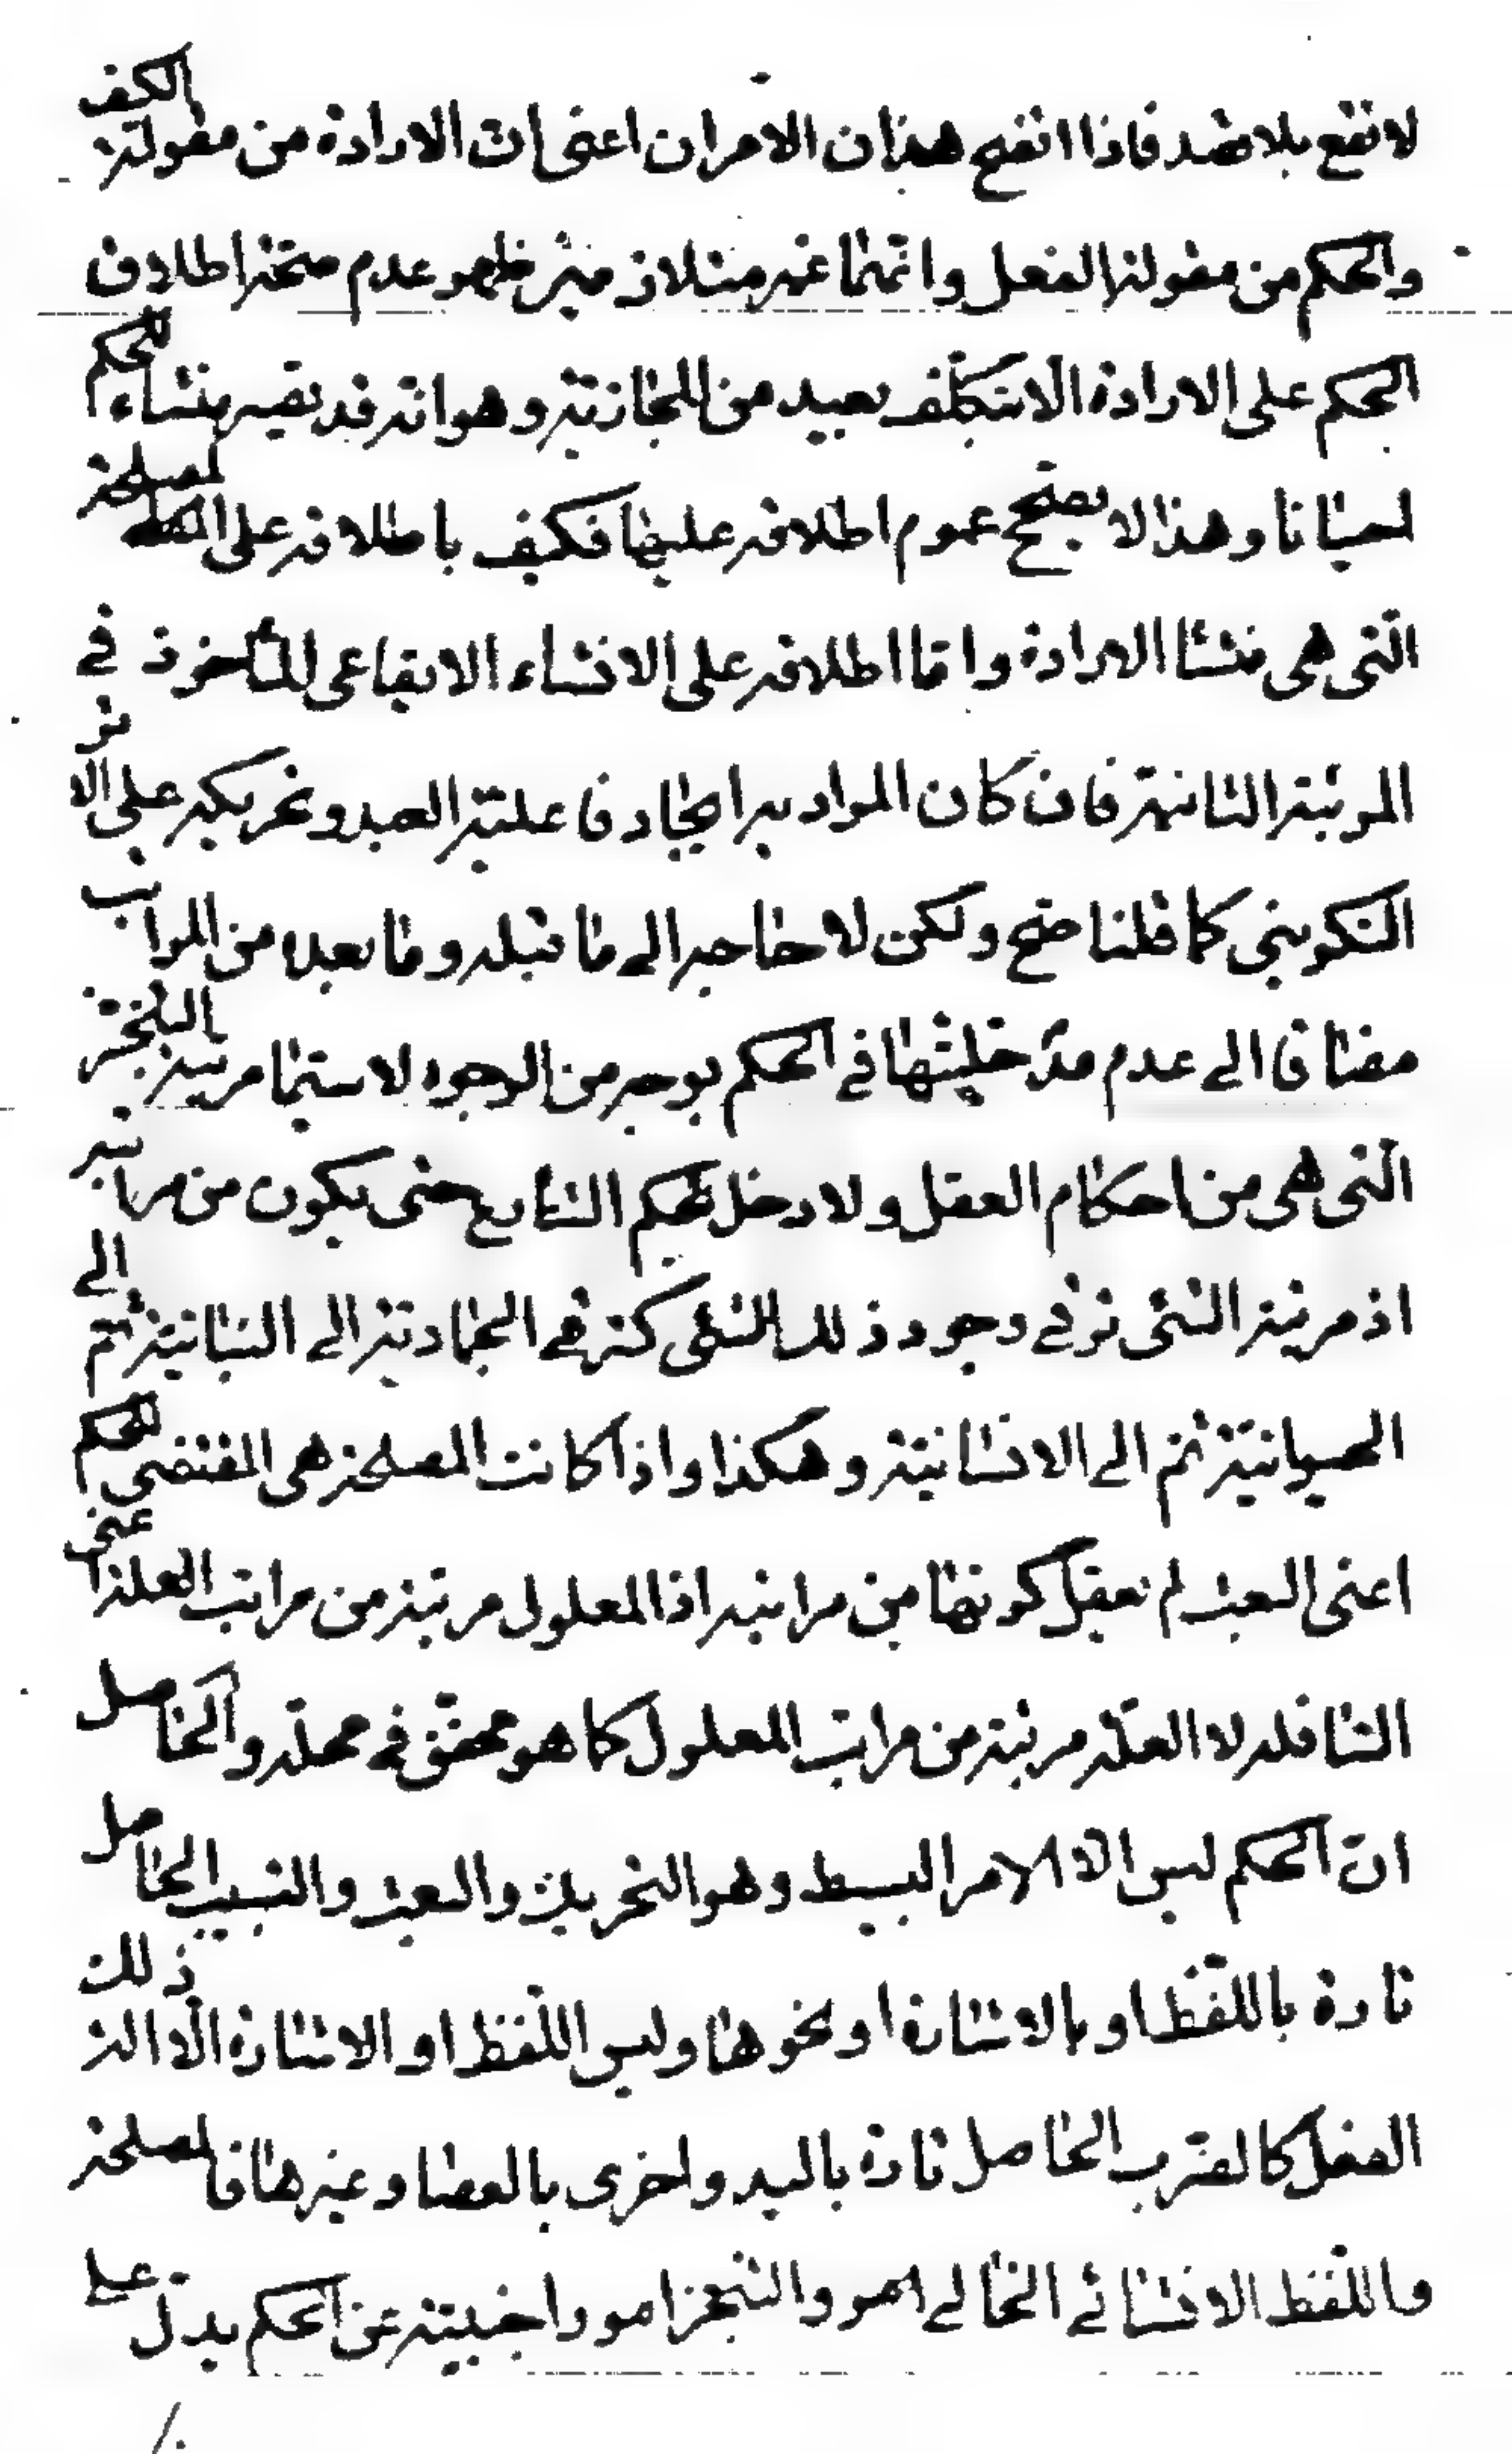 لا تقع بلا قصد فاذا اتضح هذان الامران اعنى ان الارادة من مقولة الكيف
والحكم من مقولة الفعل وانهما غير متلازمين ظهر عدم صحة اطلاق
الحكم على الارادة الا بتكلف بعيد من المجازية وهو انه قد يصير منشاء للحكم
احيانا وهذا لا يصحح عموم اطلاقه عليها فكيف باطلاقه على المصلحة
التى هى منشا الارادة واما اطلاقه على الانشاء الايقاعى المأخوذ فى
المرتبة الثانية فان كان المراد به ايجاد فاعلية العبد وتحريكه على الاثر
التكوينى كما قلنا صح ولكن لا حاجة الى ما قبله وما بعده من المراتب
مضافا الى عدم مدخليتها فى الحكم بوجه من الوجوه لا سيما مرتبة التنجز
التى هى من احكام العقل ولا دخل لحكم الشارع حتى يكون من مراتبه
اذ مرتبة الشئ ترقى وجود ذلك الشئ كترقى الجمادية الى النباتية ثم الى
الحيوانية ثم الى الانسانية وهكذا واذا كانت المصلحة هى المقتضى للحكم
اعنى البعث لم نعقل كونها من مراتبه اذ المعلول مرتبة من مراتب العلة اعنى
النافلة لا العلة مرتبة من مراتب المعلول كما هو محقق فى محله والحاصل
ان الحكم ليس الا الامر البسيط وهو التحريك والبعث والتسبيب الحاصل
تارة باللفظ او بالاشارة او نحوها وليس اللفظ او الاشارة الا الة ذلك
الفعل كالضرب الحاصل تارة باليد واخرى بالعصا وغيرها فالمصلحة
واللفظ الانشائى الخالى امر والتنجز امور اجنبية عن الحكم يدل على